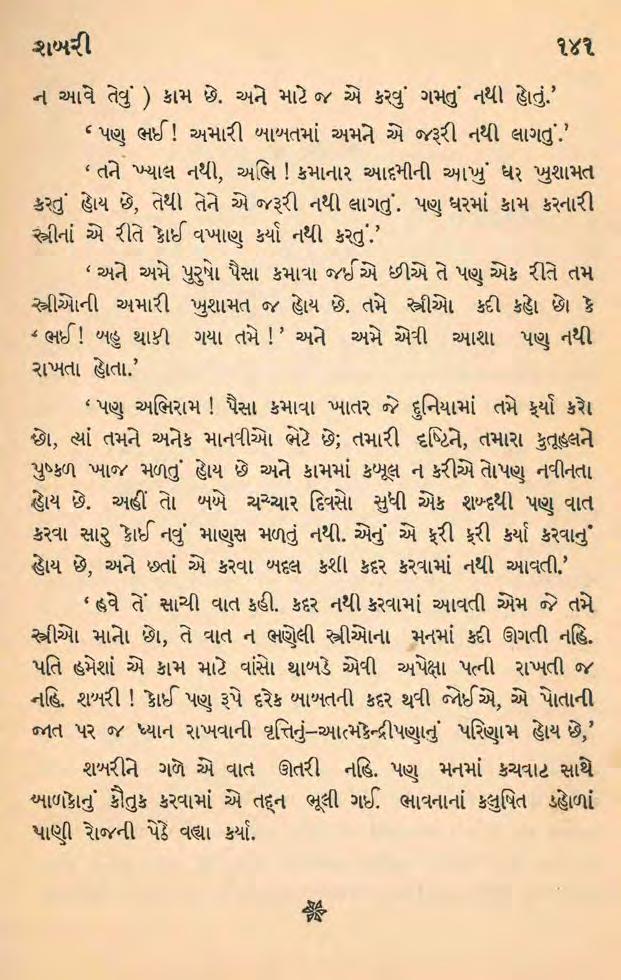 શબરી ૧૪૧
ન આવે તેવું ) કામ છે. અને માટે જ એ કરવું ગમતું નથી હોતું.’
‘ પણ ભઈ ! અમારી બાબતમાં અમને એ જરૂરી નથી લાગતું.’
‘ તને ખ્યાલ નથી, અભિ ! કમાનાર આદમીની આખું ઘર ખુશામત
કરતું હોય છે, તેથી તેને એ જરૂરી નથી લાગતું. પણ ઘરમાં કામ કરનારી
સ્ત્રીનાં એ રીતે કોઈ વખાણ કર્યાં નથી કરતું.’
‘ અને અમે પુરુષો પૈસા કમાવા જઈએ છીએ તે પણ એક રીતે તમ
સ્ત્રીઓની અમારી ખુશામત જ હોય છે. તમે સ્ત્રીઓ કદી કહો છો કે
‘ ભઈ ! બહુ થાકી ગયા તમે ! ’ અને અમે એવી આશા પણ નથી
રાખતા હોતા.’
‘ પણ અભિરામ ! પૈસા કમાવા ખાતર જે દુનિયામાં તમે ફર્યાં કરો
છો, ત્યાં તમને અનેક માનવીઓ ભેટે છે; તમારી દષ્ટિને, તમારા કુતૂહલને
પુષ્કળ ખાજ મળતું હોય છે અને કામમાં કબૂલ ન કરીએ તોપણ નવીનતા
હોય છે. અહીં તો બબે ચચ્ચાર દિવસો સુધી એક શબ્દથી પણ વાત
કરવા સારુ કોઈ નવું માણુસ મળતું નથી. એનું એ ફરી ફરી કર્યા કરવાનું
હોય છે, અને છતાં એ કરવા બદલ કશી કદર કરવામાં નથી આવતી.’
‘ હવે તેં સાચી વાત કહી. કદર નથી કરવામાં આવતી એમ જે તમે
સ્ત્રીઓ માનો છો, તે વાત ન ભણેલી સ્ત્રીઓના મનમાં કદી ઊગતી નહિ.
પતિ હમેશાં એ કામ માટે વાંસો થાબડે એવી અપેક્ષા પત્ની રાખતી જ
નહિ. શબરી ! કોઈ પણ રૂપે દરેક બાબતની કદર થવી જોઈએ, એ પોતાની
જાત પર જ ધ્યાન રાખવાની વૃત્તિનું–આત્મકેન્દ્રીપણાનું પરિણામ હોય છે,’
શબરીને ગળે એ વાત ઊતરી નહિ. પણ મનમાં કચવાટ સાથે
બાળકોનું કૌતુક કરવામાં એ તદ્દન ભૂલી ગઈ. ભાવનાનાં કલુષિત ડહોળાં
પાણી રોજની પેઠે વહ્યા કર્યાં.